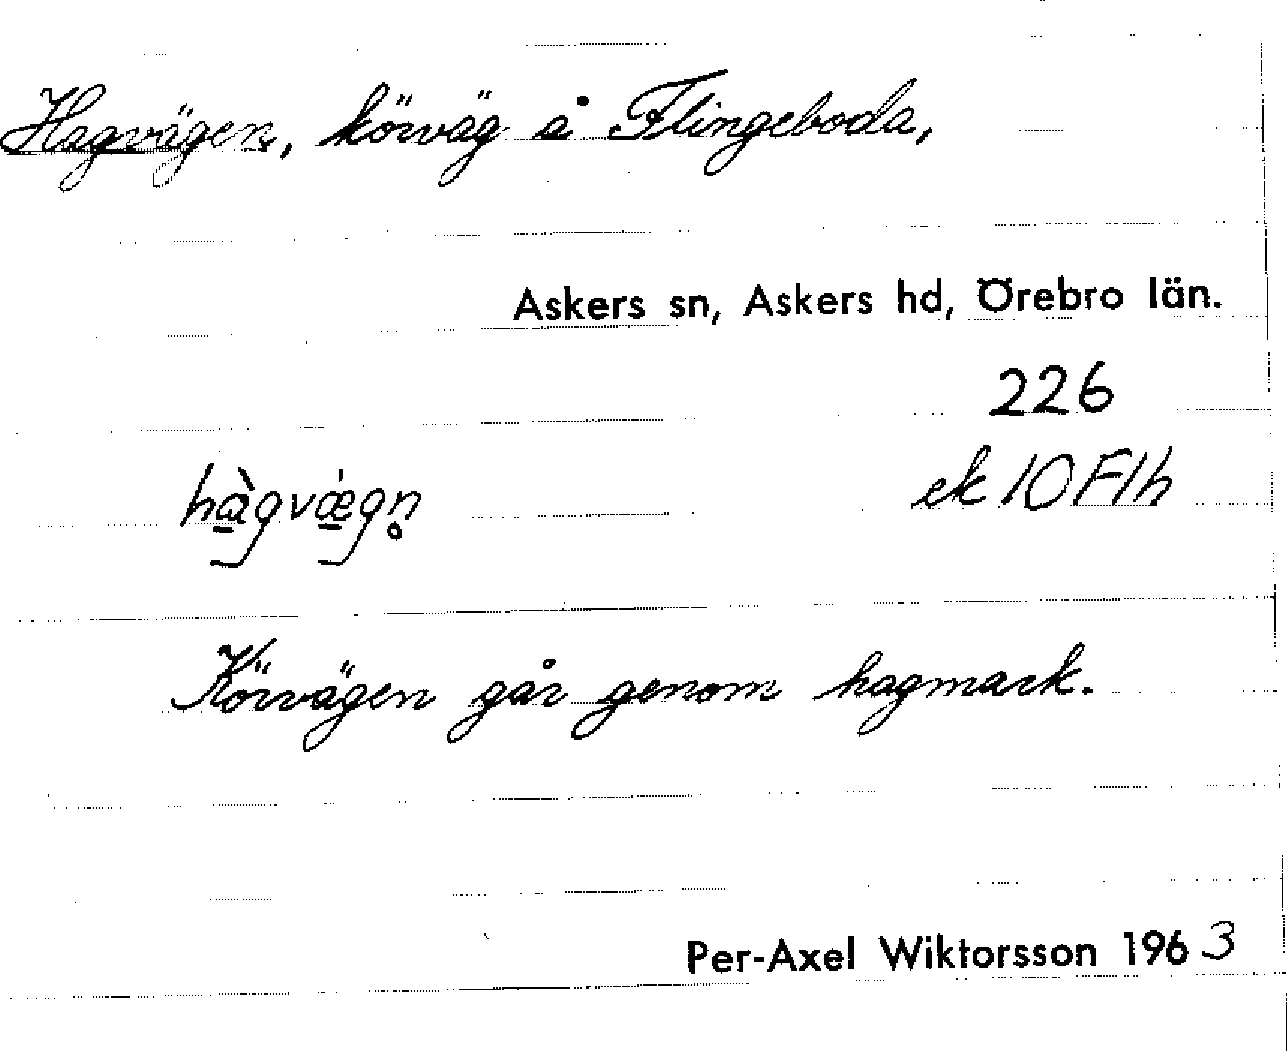 Hagvägen, körväg å Flingeboda,
Askers sn, Askers hd, Örebro län.
226
hàgvǽgn̥
ek 10 F1h
Körvägen går genom hagmark.
Per-Axel Wiktorsson 1963